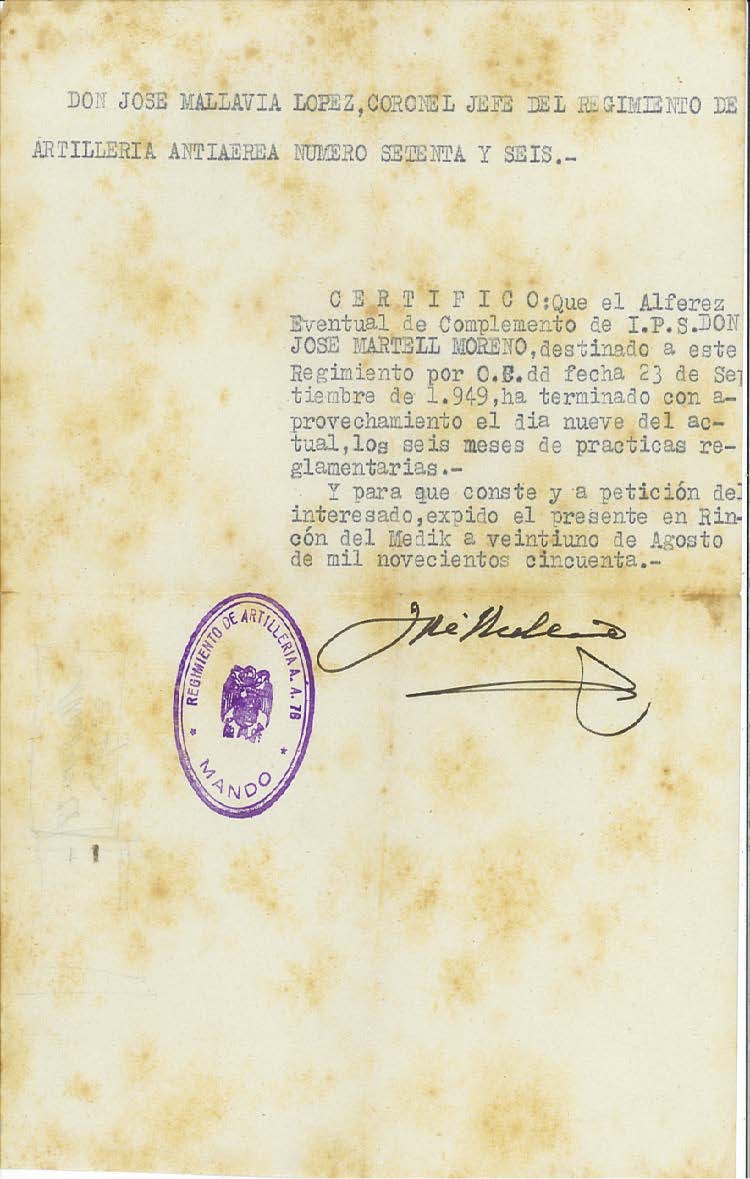 DON JOSE MALLAVIA LOPEZ,CORONEL JEFE DEL REGIMIENTO DE
ARTILLERIA ANTIAEREA NUMERO SETENTA Y SEIS.-
C E R T I F I C O:Que el Alferez
Eventual de Complemento de I.P.S.DON
JOSE MARTELL MORENO,destinado a este
Regimiento por O.E.dd fecha 23 de Sep
tiembre de 1.949,ha terminado con a-
provechamiento el dia nueve del ac-
tual,los seis meses de practicas re-
glamentarias.-
Y para que conste y a petición del
interesado,expido el presente en Rin-
cón del Medik a veintiuno de Agosto
de mil novecientos cincuenta.-
REGIMIENTO DE ARTILLERIA A. A. 76
* MANDO *